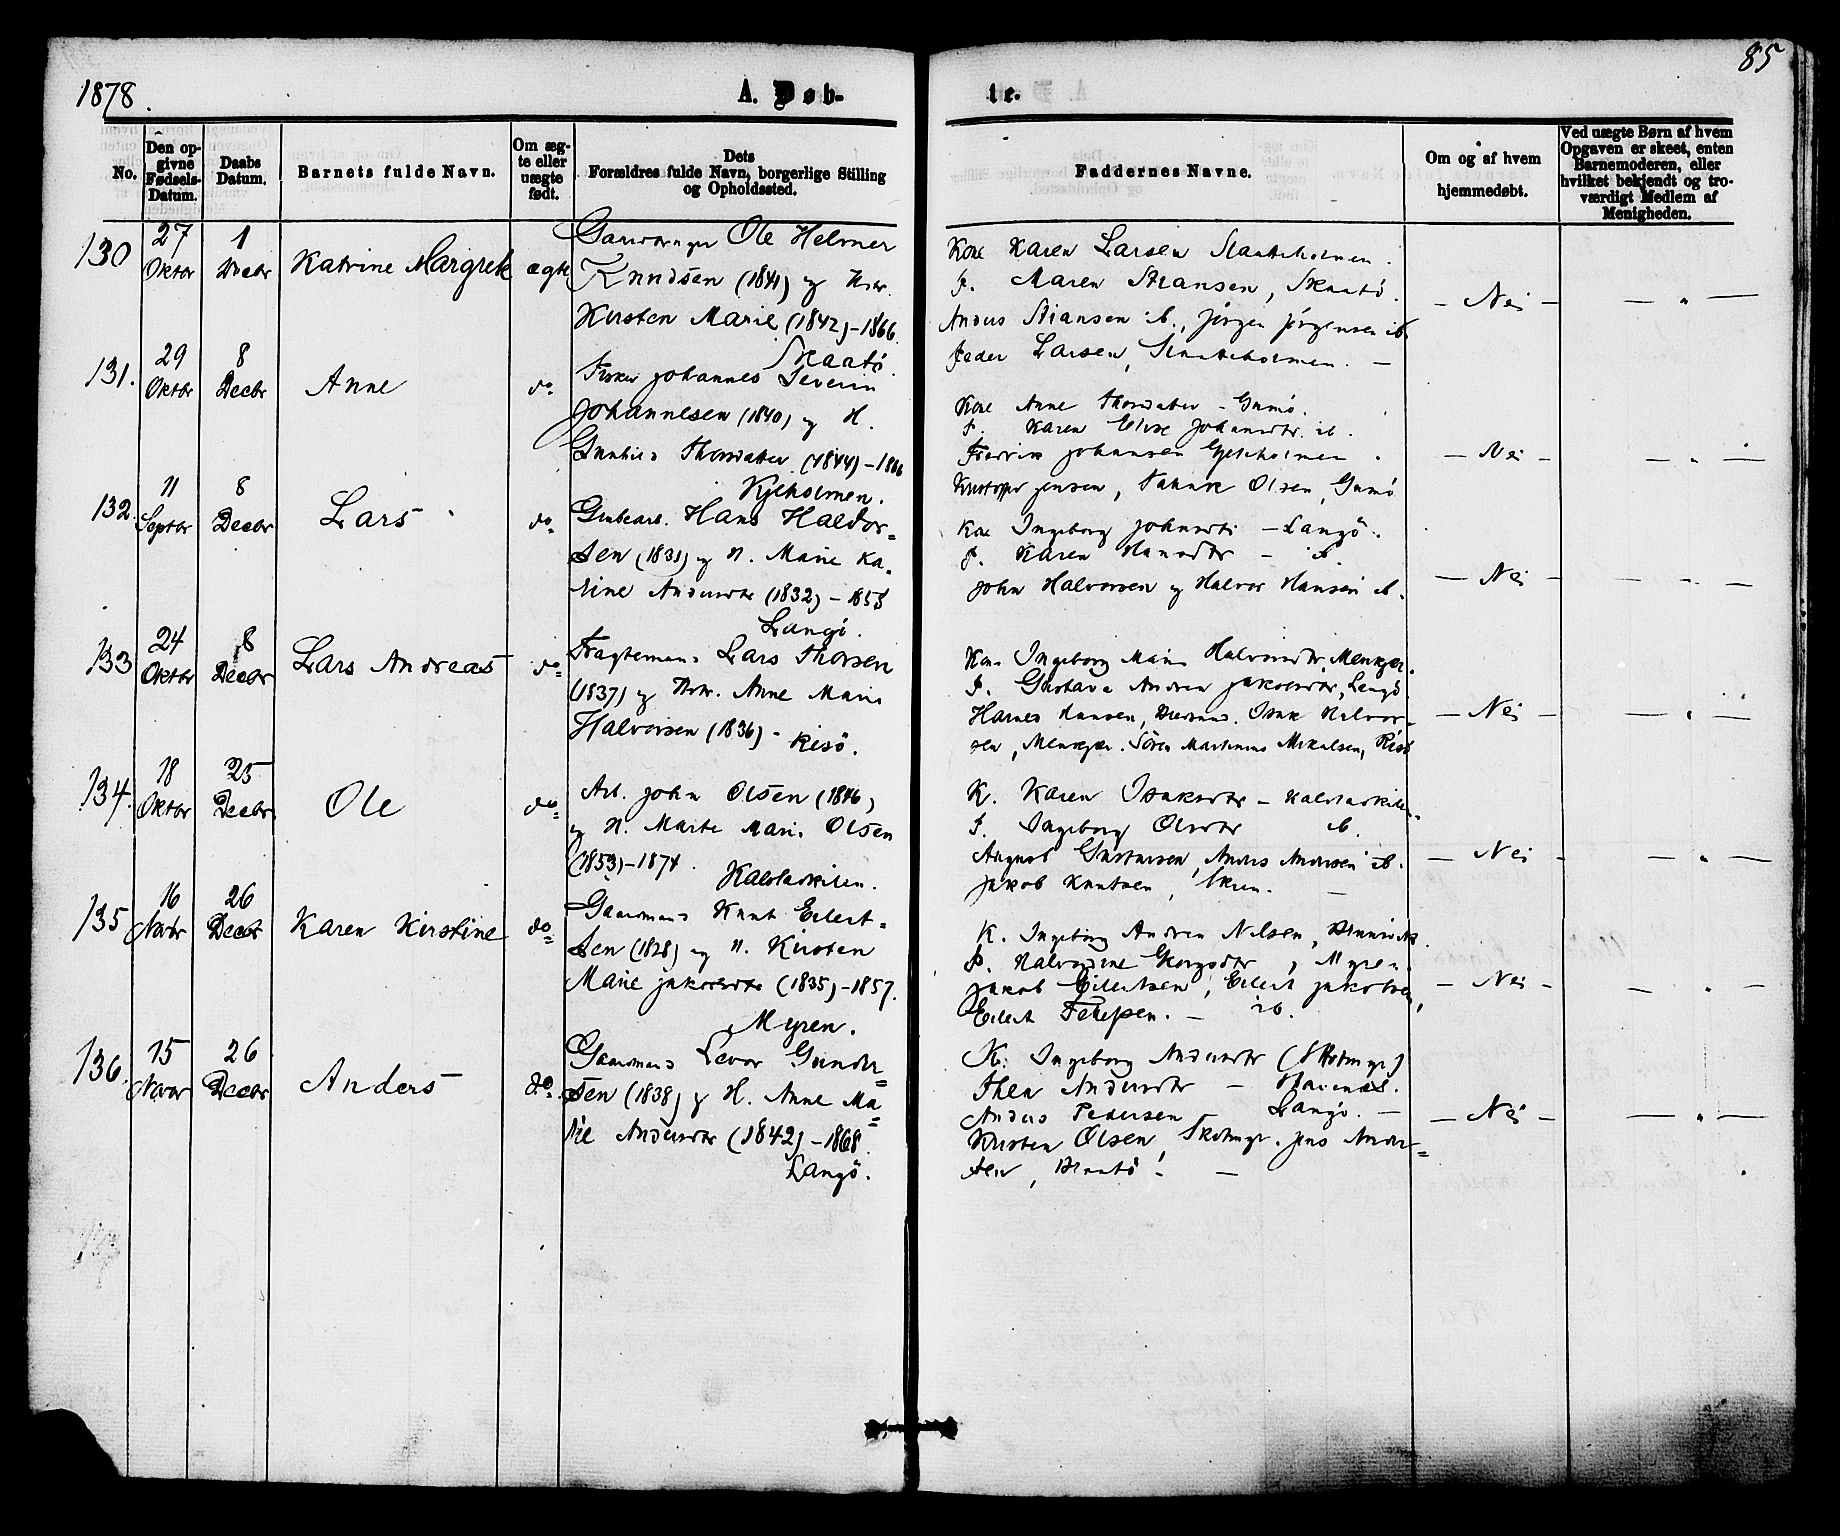 1878.
A. Døb-
te.
85
No.
Den op-
givne
Fødsels-
Datum.
Daabs
Datum.
Barnets fulde Navn.
Om æg-
te eller
uægte
født.
Dets
Forældres fulde Navn, borgerlige Stilling
og Opholdssted.
Faddernes Navne.
Om og af hvem
hjemmedøbt.
Ved uægte Børn af hvem
Opgaven er skeet, enten
Barnemoderen, eller
hvilket bekjendt og tro-
værdigt Medlem af
Menigheden.
130
27
Oktbr
1
Decbr
Katrine Margrete
ægte
Ole Helmer
Knudsen (1841) og Hstr.
Kirsten Marie (1842) - 1866.
Skaatö.
Kone Karen Larsen
P. Maren Stiansen, Skaatö.
Anders Stiansen ib., Jörgen Jörgensen ib.
Peder Larsen,
- Nei -
- " -
131.
29
Oktbr
8
Decbr
Anne
do
Fisker Johannes Severin
Johannesen (1840) og H.
Gunhild Thorsdatter (1844) - 1866
Kone Anne Thorsdatter - Gumö.
P. Karen Elise Johansdtr. ib.
Fredrik Johansen
Kristoffer Jensen, Olsen, Gumö
- Nei -
- " -
132.
11
Septbr
8
Decbr
Lars
do
Grubearb. Hans Haldor-
sen (1831) og H. Marie Ka-
trine Andersdtr (1832) - 1855
Langö.
Kone Ingeborg Johnsdtr - Langö.
P. Karen Hansdtr - ib.
John Halvorsen og Halvor Hansen ib.
- Nei -
- " -
133
24
Oktbr
8
Decbr
Lars Andreas
do
Fragtemand Lars Thorsen
(1837) og Hstr. Anne Marie
Halvorsen (1836) -
Risö.
Kone Ingeborg Marie Halvorsdtr, Menkjær.
P. Gustava Andrea Jakobsdtr, Langö
Hansen, Isak Halvor-
sen, Menkjær. Sören Martinius Mikalsen, Risö
- Nei -
- " -
134.
18
Oktbr
25
Decbr
Ole
do
Arb. John Olsen (1846)
og H. Marte Marie Olsen
(1853) - 1874.
Kalstadkilen.
K. Karen Isaksdtr - Kalstadkilen.
P. Ingeborg Olsdtr ib.
Gustavsen, Anders Andersen ib.
Jakob Knutsen,
- Nei -
- " -
135
16
Novbr
26
Decbr
Karen Kirstine
do
Gaardmand Knut Eilert-
sen (1828) og H. Kirsten
Marie Jakobsdtr (1835) - 1857.
Myren.
K. Ingeborg Andrea Nilsen,
P. Halvordine, Myren.
Jakob Eilertsen, Eilert Jakobsen,
Eilert - ib.
- Nei -
- " -
136.
15
Novbr
26
Decbr
Anders
do.
Gaardmand Levor Gunder-
sen (1838) og H. Anne Ma-
rie Andersdtr (1842) - 1868.
Langö.
K. Ingeborg Andersdtr
Thea Andersdtr -
Anders Pedersen Langö. -
Kristen Olsen, Jens Ander-
sen, Skaatö. -
- Nei -
- " -